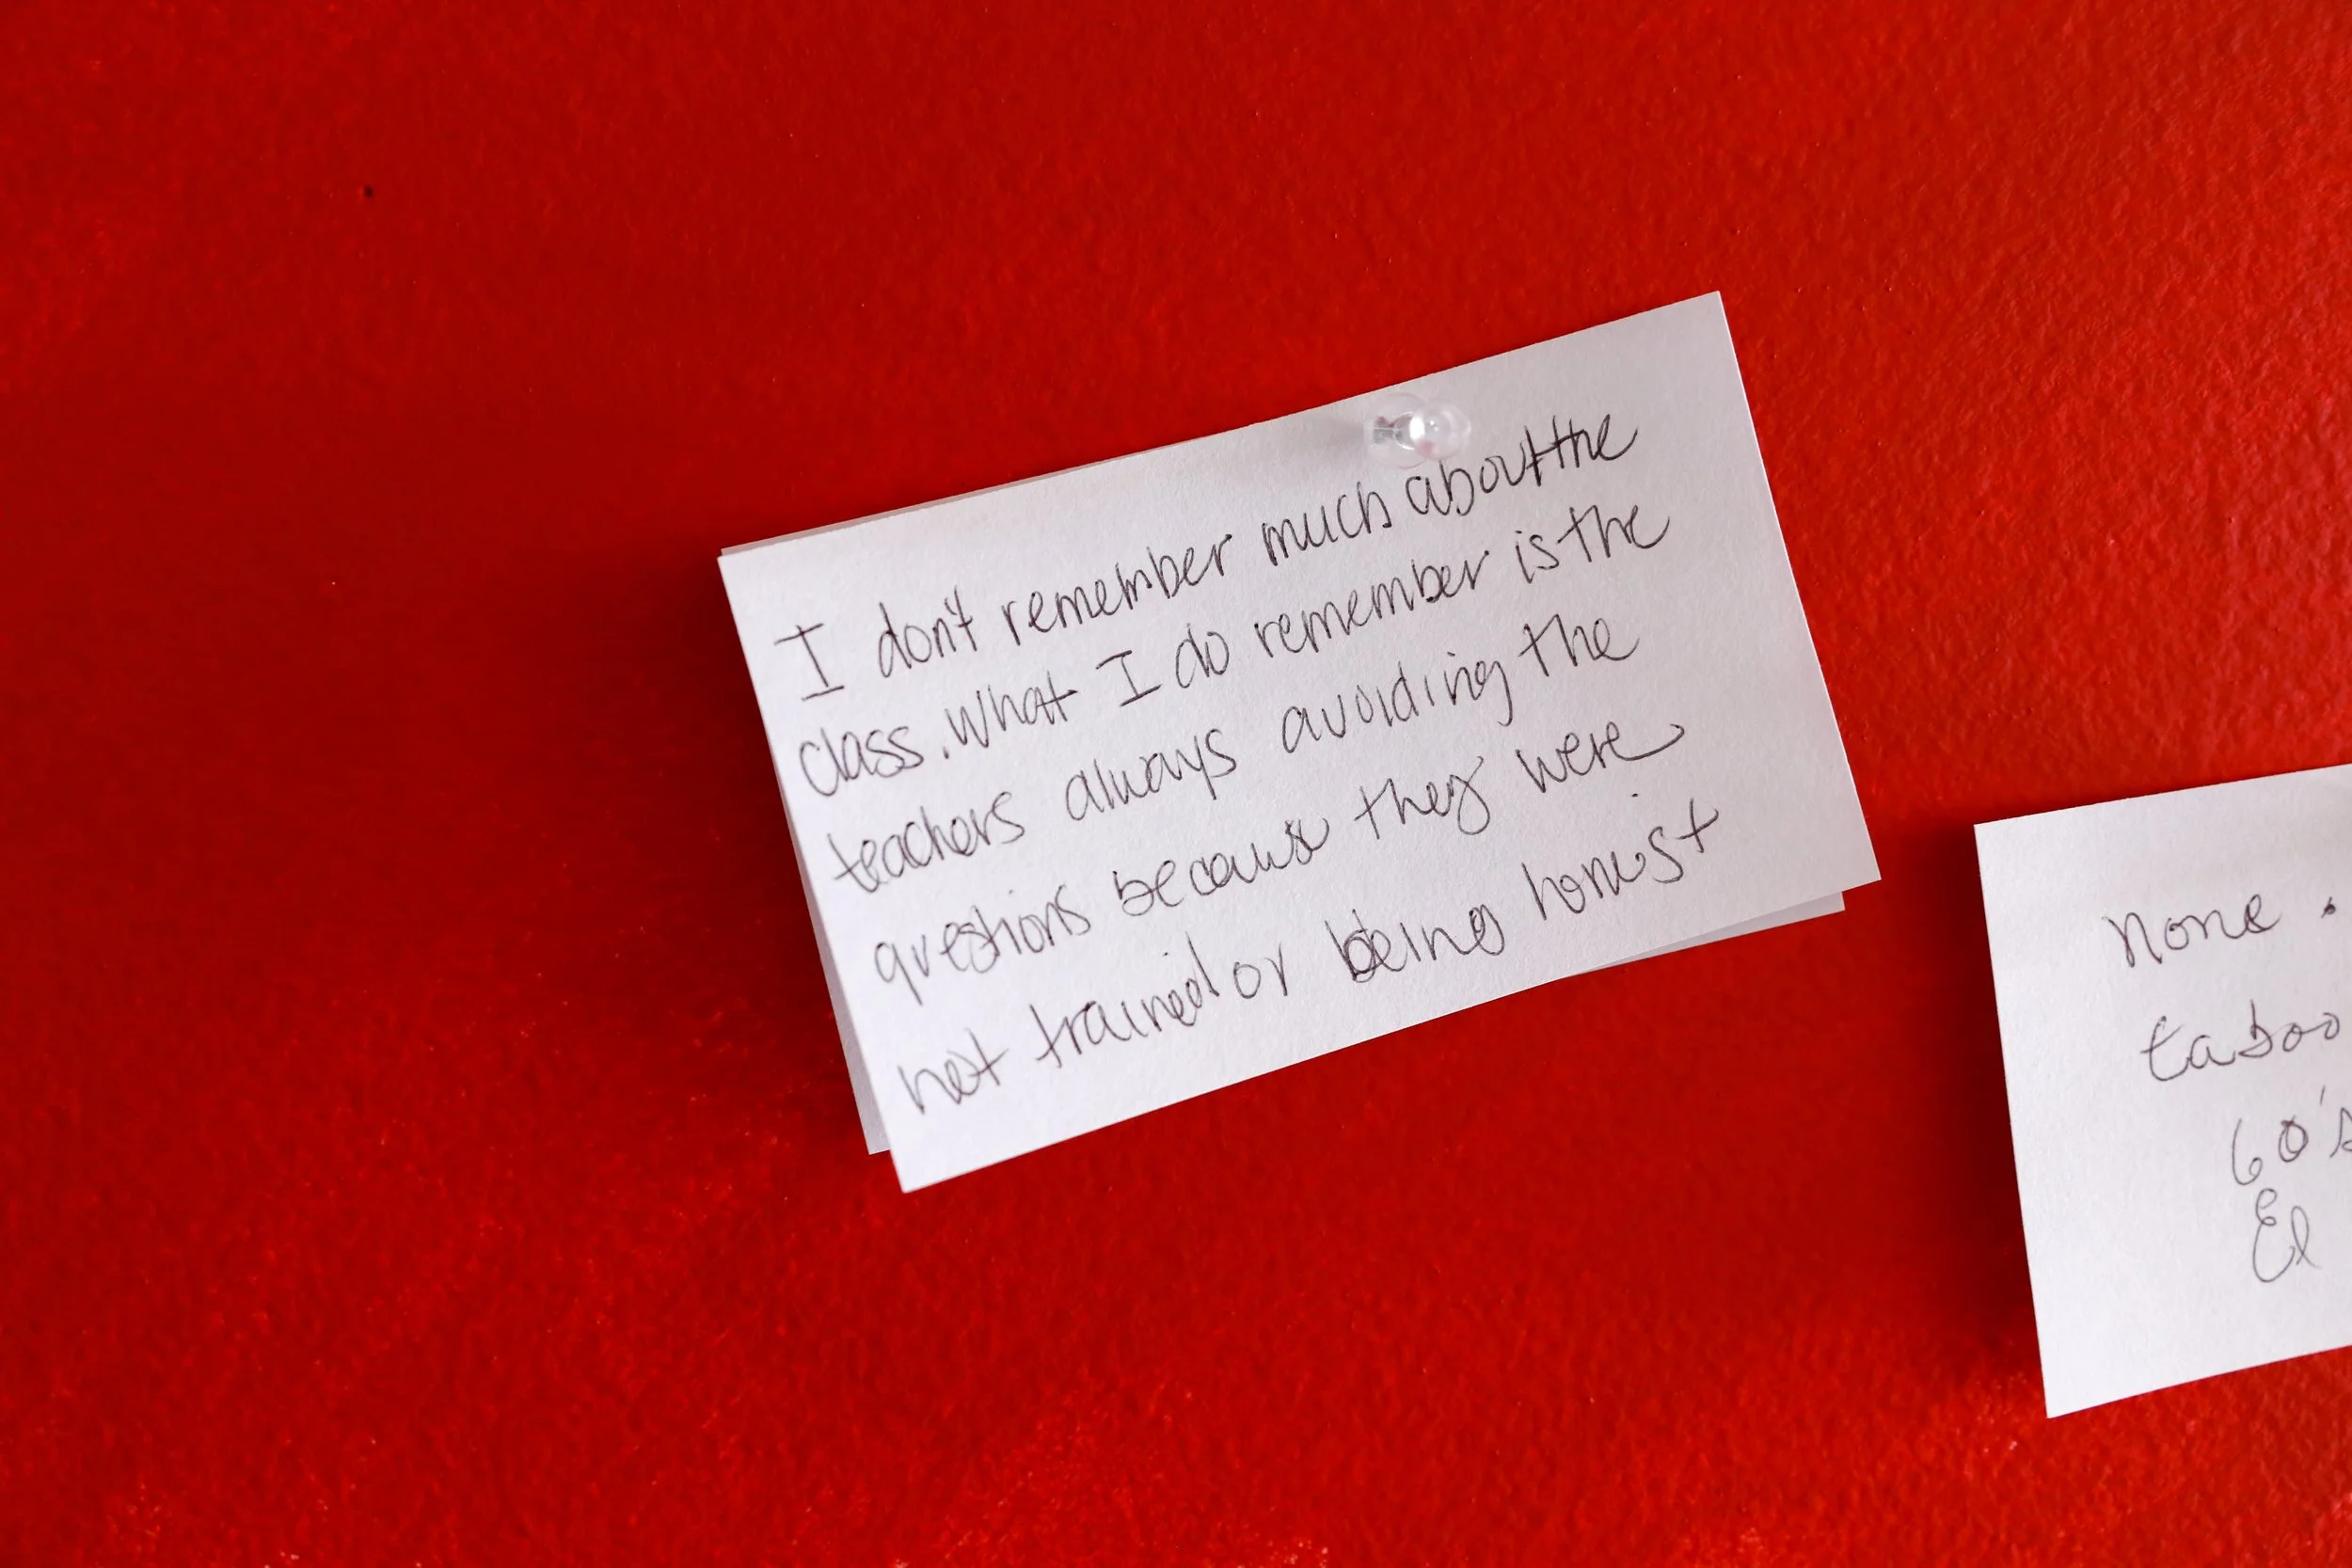 I don't remember much about the
class. What I do remember is the
teachers always avoiding the
questions because they were
not trained or being honest
None.
taboo
60's
El